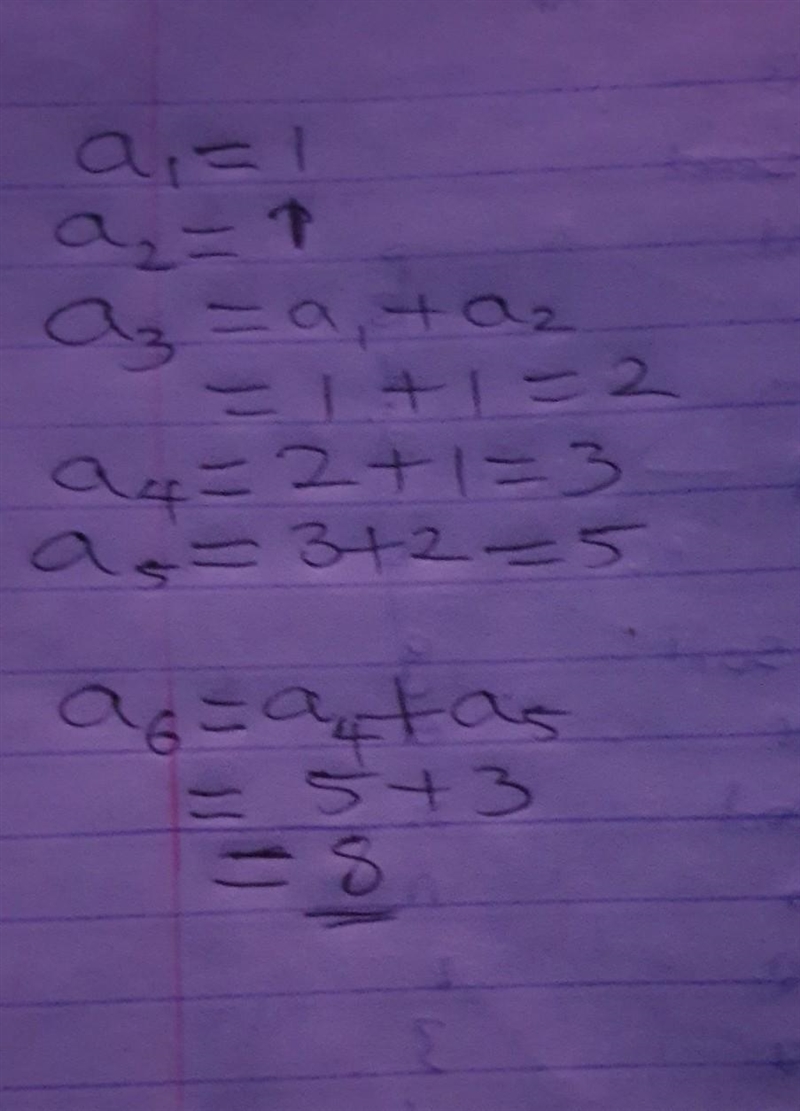 a₁ = 1
a₂ = 1
a₃ = a₁ + a₂
= 1 + 1 = 2
a₄ = 2 + 1 = 3
a₅ = 3 + 2 = 5
a₆ = a₄ + a₅
= 5 + 3
= 8